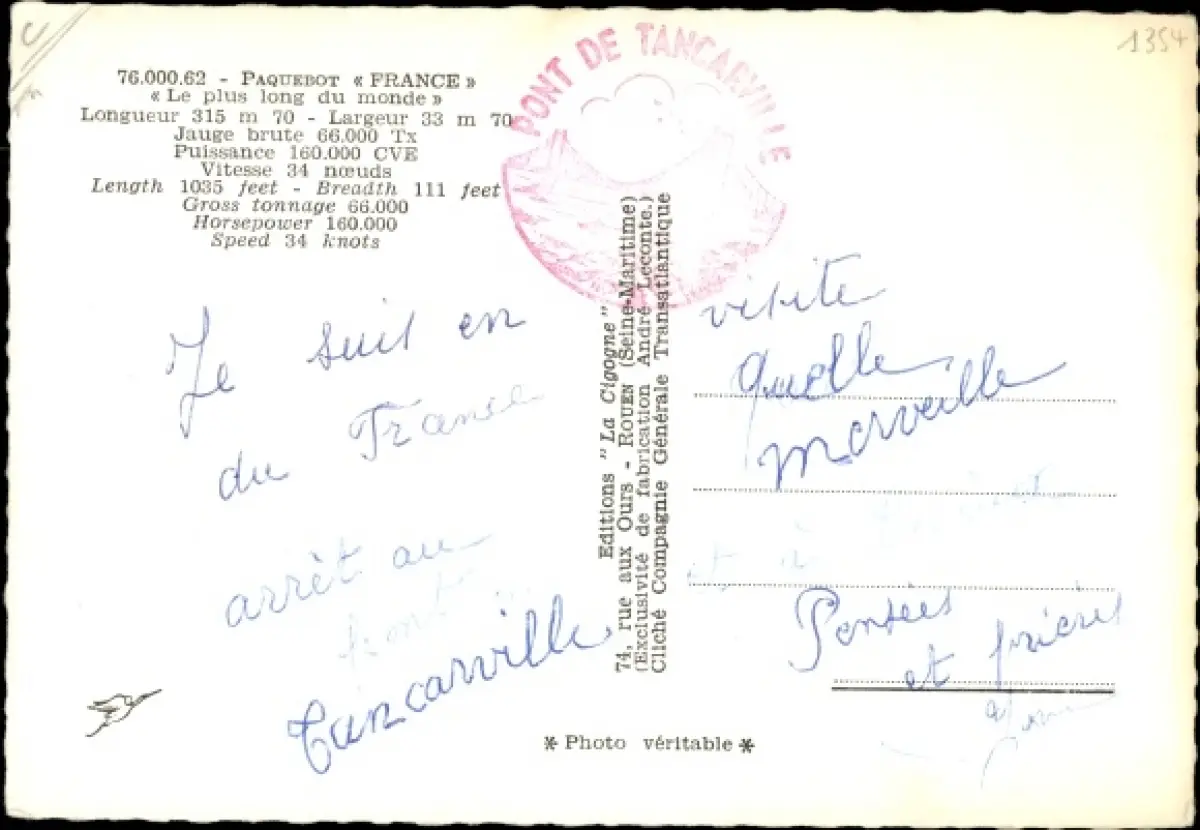 1354
76.000.62 - PAQUEBOT « FRANCE »
« Le plus long du monde »
Longueur 315 m 70 - Largeur 33 m 70
Jauge brute 66.000 Tx
Puissance 160.000 CVE
Vitesse 34 nœuds
Length 1035 feet - Breadth 111 feet
Gross tonnage 66.000
Horsepower 160.000
Speed 34 knots
PONT DE TANCARVILLE
Je suis en visite
du France
Quelle
merveille
arrêt au
pont
Tancarville
et à
Pensées
et prières
Editions "La Cigogne"
74, rue aux Ours - ROUEN (Seine-Maritime)
(Exclusivité de fabrication André Leconte.)
Cliché Compagnie Générale Transatlantique
* Photo véritable *